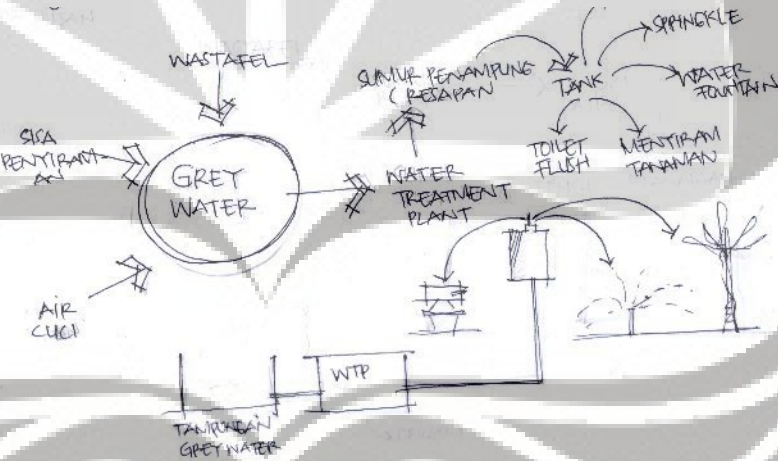 WASTAFEL
SISA
PENYIRAM-
AN
GREY
WATER
AIR
CUCI
WATER
TREATMENT
PLANT
SUMUR PENAMPUNG
( RESAPAN
TANK
SPRINGKLE
WATER
FOUNTAIN
TOILET
FLUSH
MENYIRAM
TANAMAN
WTP
TAMPUNGAN
GREY WATER